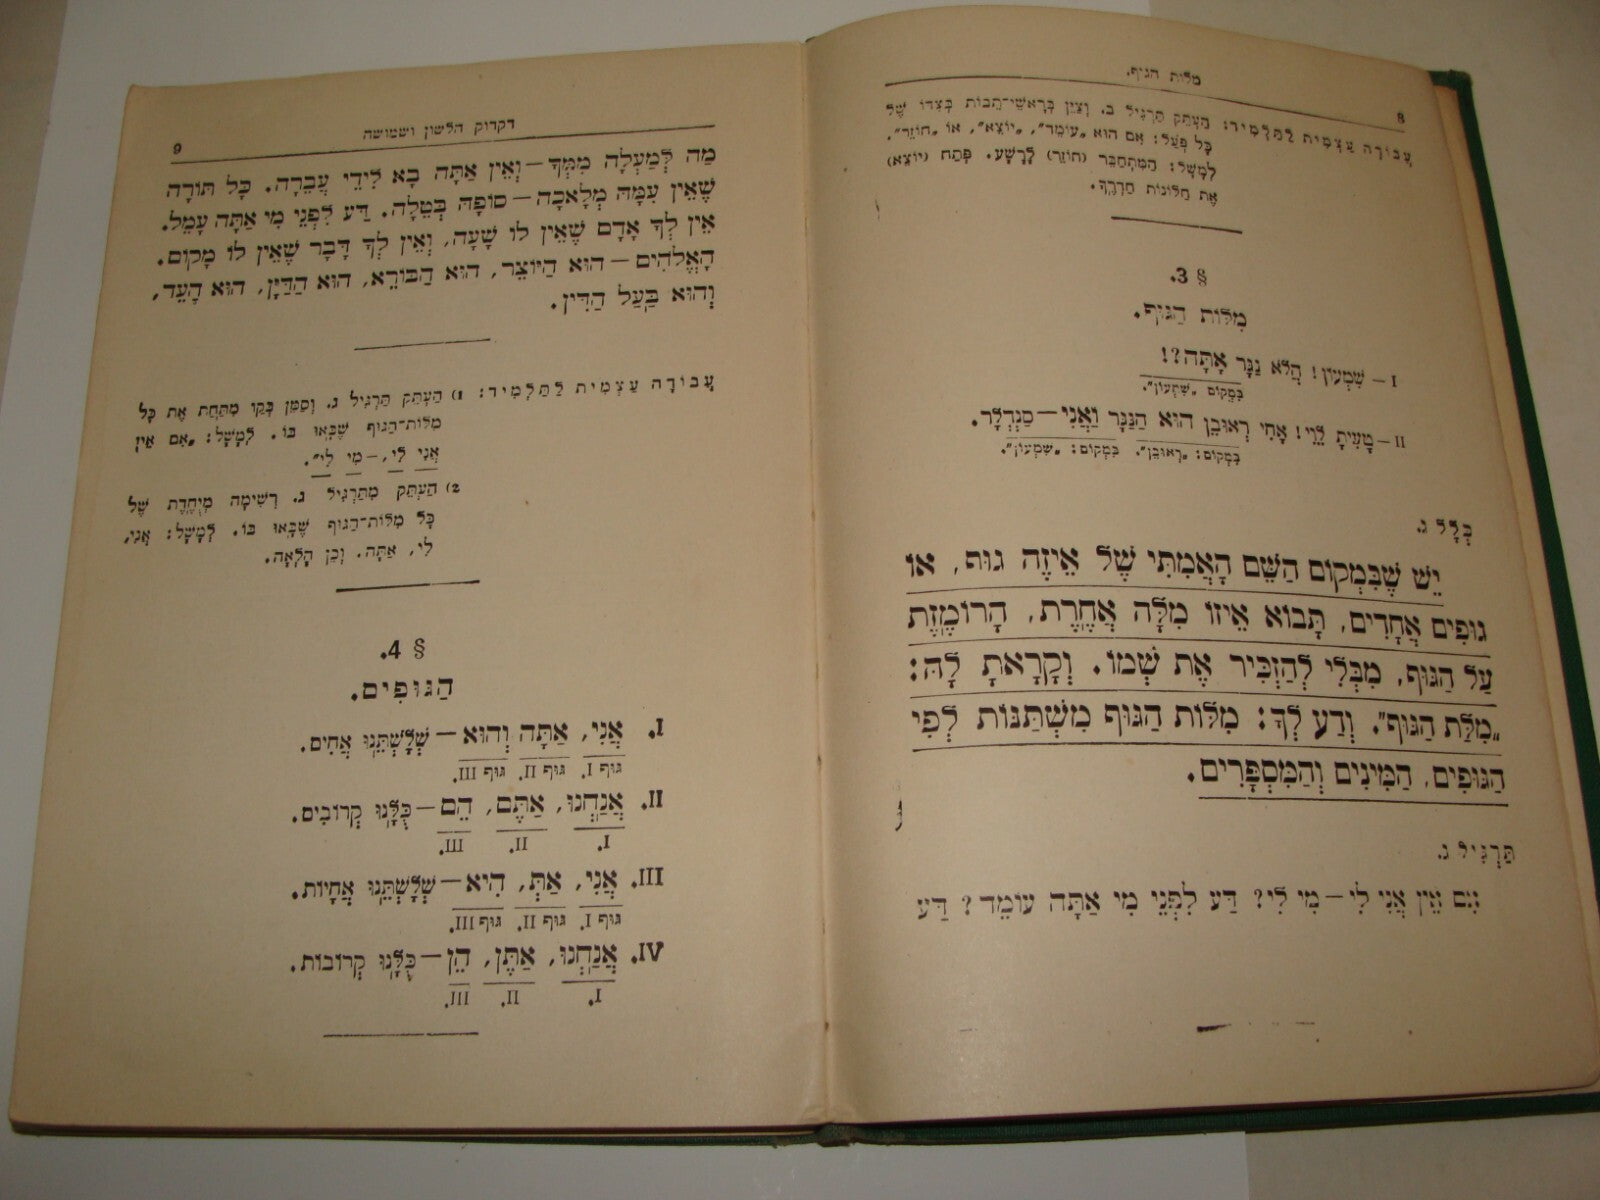 מלות הגוף.
8
עֲבוֹדָה עַצְמִית לַתַּלְמִיד: הַעְתֵּק תַּרְגִּיל ב. וְצַיֵּן בְּרָאשֵׁי־תֵבוֹת בְּצִדּוֹ שֶׁל
כָּל פֹּעַל: אִם הוּא „עוֹמֵד”, „יוֹצֵא”, אוֹ „חוֹזֵר”.
לְמָשָׁל: הִתְחַבֵּר (חוֹזֵר) לָרָשָׁע. פְּתַח (יוֹצֵא)
אֶת חַלּוֹנוֹת חַדְרֶךָ.
§ 3.
מִלּוֹת הַגּוּף.
I – שִׁמְעוֹן! הֲלֹא נַגָּר אָתָּה?!
בִּמְקוֹם „שִׁמְעוֹן”.
II – טָעִיתָ לֵוִי! אָחִי רְאוּבֵן הוּא הַנַּגָּר וַאֲנִי – סַנְדְּלָר.
בִּמְקוֹם: „רְאוּבֵן”. בִּמְקוֹם: „שִׁמְעוֹן”.
כְּלָל ג.
יֵשׁ שֶׁבִּמְקוֹם הַשֵּׁם הָאֲמִתִּי שֶׁל אֵיזֶה גוּף, אוֹ
גוּפִים אֲחָדִים, תָּבוֹא אֵיזוֹ מִלָּה אַחֶרֶת, הָרוֹמֶזֶת
עַל הַגּוּף, מִבְּלִי לְהַזְכִּיר אֶת שְׁמוֹ. וְקָרָאתָ לָהּ:
„מִלַּת הַגּוּף”. וְדַע לְךָ: מִלּוֹת הַגּוּף מִשְׁתַּנּוֹת לְפִי
הַגּוּפִים, הַמִּינִים וְהַמִּסְפָּרִים.
תַּרְגִּיל ג.
אִם אֵין אֲנִי לִי – מִי לִי? דַּע לִפְנֵי מִי אַתָּה עוֹמֵד? דַּע
דקדוק הלשון ושמושה
9
מַה לְּמַעְלָה מִמְּךָ – וְאֵין אַתָּה בָא לִידֵי עֲבֵרָה. כָּל תּוֹרָה
שֶׁאֵין עִמָּהּ מְלָאכָה – סוֹפָהּ בְּטֵלָה. דַּע לִפְנֵי מִי אַתָּה עָמֵל.
אֵין לְךָ אָדָם שֶׁאֵין לוֹ שָׁעָה, וְאֵין לְךָ דָּבָר שֶׁאֵין לוֹ מָקוֹם.
הָאֱלֹהִים – הוּא הַיּוֹצֵר, הוּא הַבּוֹרֵא, הוּא הַדַּיָּן, הוּא הָעֵד,
וְהוּא בַּעַל הַדִּין.
עֲבוֹדָה עַצְמִית לַתַּלְמִיד: 1) הַעְתֵּק תַּרְגִּיל ג. וְסַמֵּן בְּקַו מִתַּחַת אֶת כָּל
מִלּוֹת־הַגּוּף שֶׁבָּאוּ בוֹ. לְמָשָׁל: „אִם אֵין
אֲנִי לִי, – מִי לִי”.
2) הַעְתֵּק מִתַּרְגִּיל ג. רְשִׁימָה מְיֻחֶדֶת שֶׁל
כָּל מִלּוֹת־הַגּוּף שֶׁבָּאוּ בוֹ. לְמָשָׁל: אֲנִי,
לִי, אַתָּה. וְכֵן הָלְאָה.
§ 4.
הַגּוּפִים.
I. אֲנִי, אַתָּה וְהוּא – שְׁלָשְׁתֵּנוּ אַחִים.
גּוּף I. גּוּף II. גּוּף III.
II. אֲנַחְנוּ, אַתֶּם, הֵם – כֻּלָּנוּ קְרוֹבִים.
I. II. III.
III. אֲנִי, אַתְּ, הִיא – שְׁלָשְׁתֵּנוּ אֲחָיוֹת.
גּוּף I. גּוּף II. גּוּף III.
IV. אֲנַחְנוּ, אַתֶּן, הֵן – כֻּלָּנוּ קְרוֹבוֹת.
I. II. III.